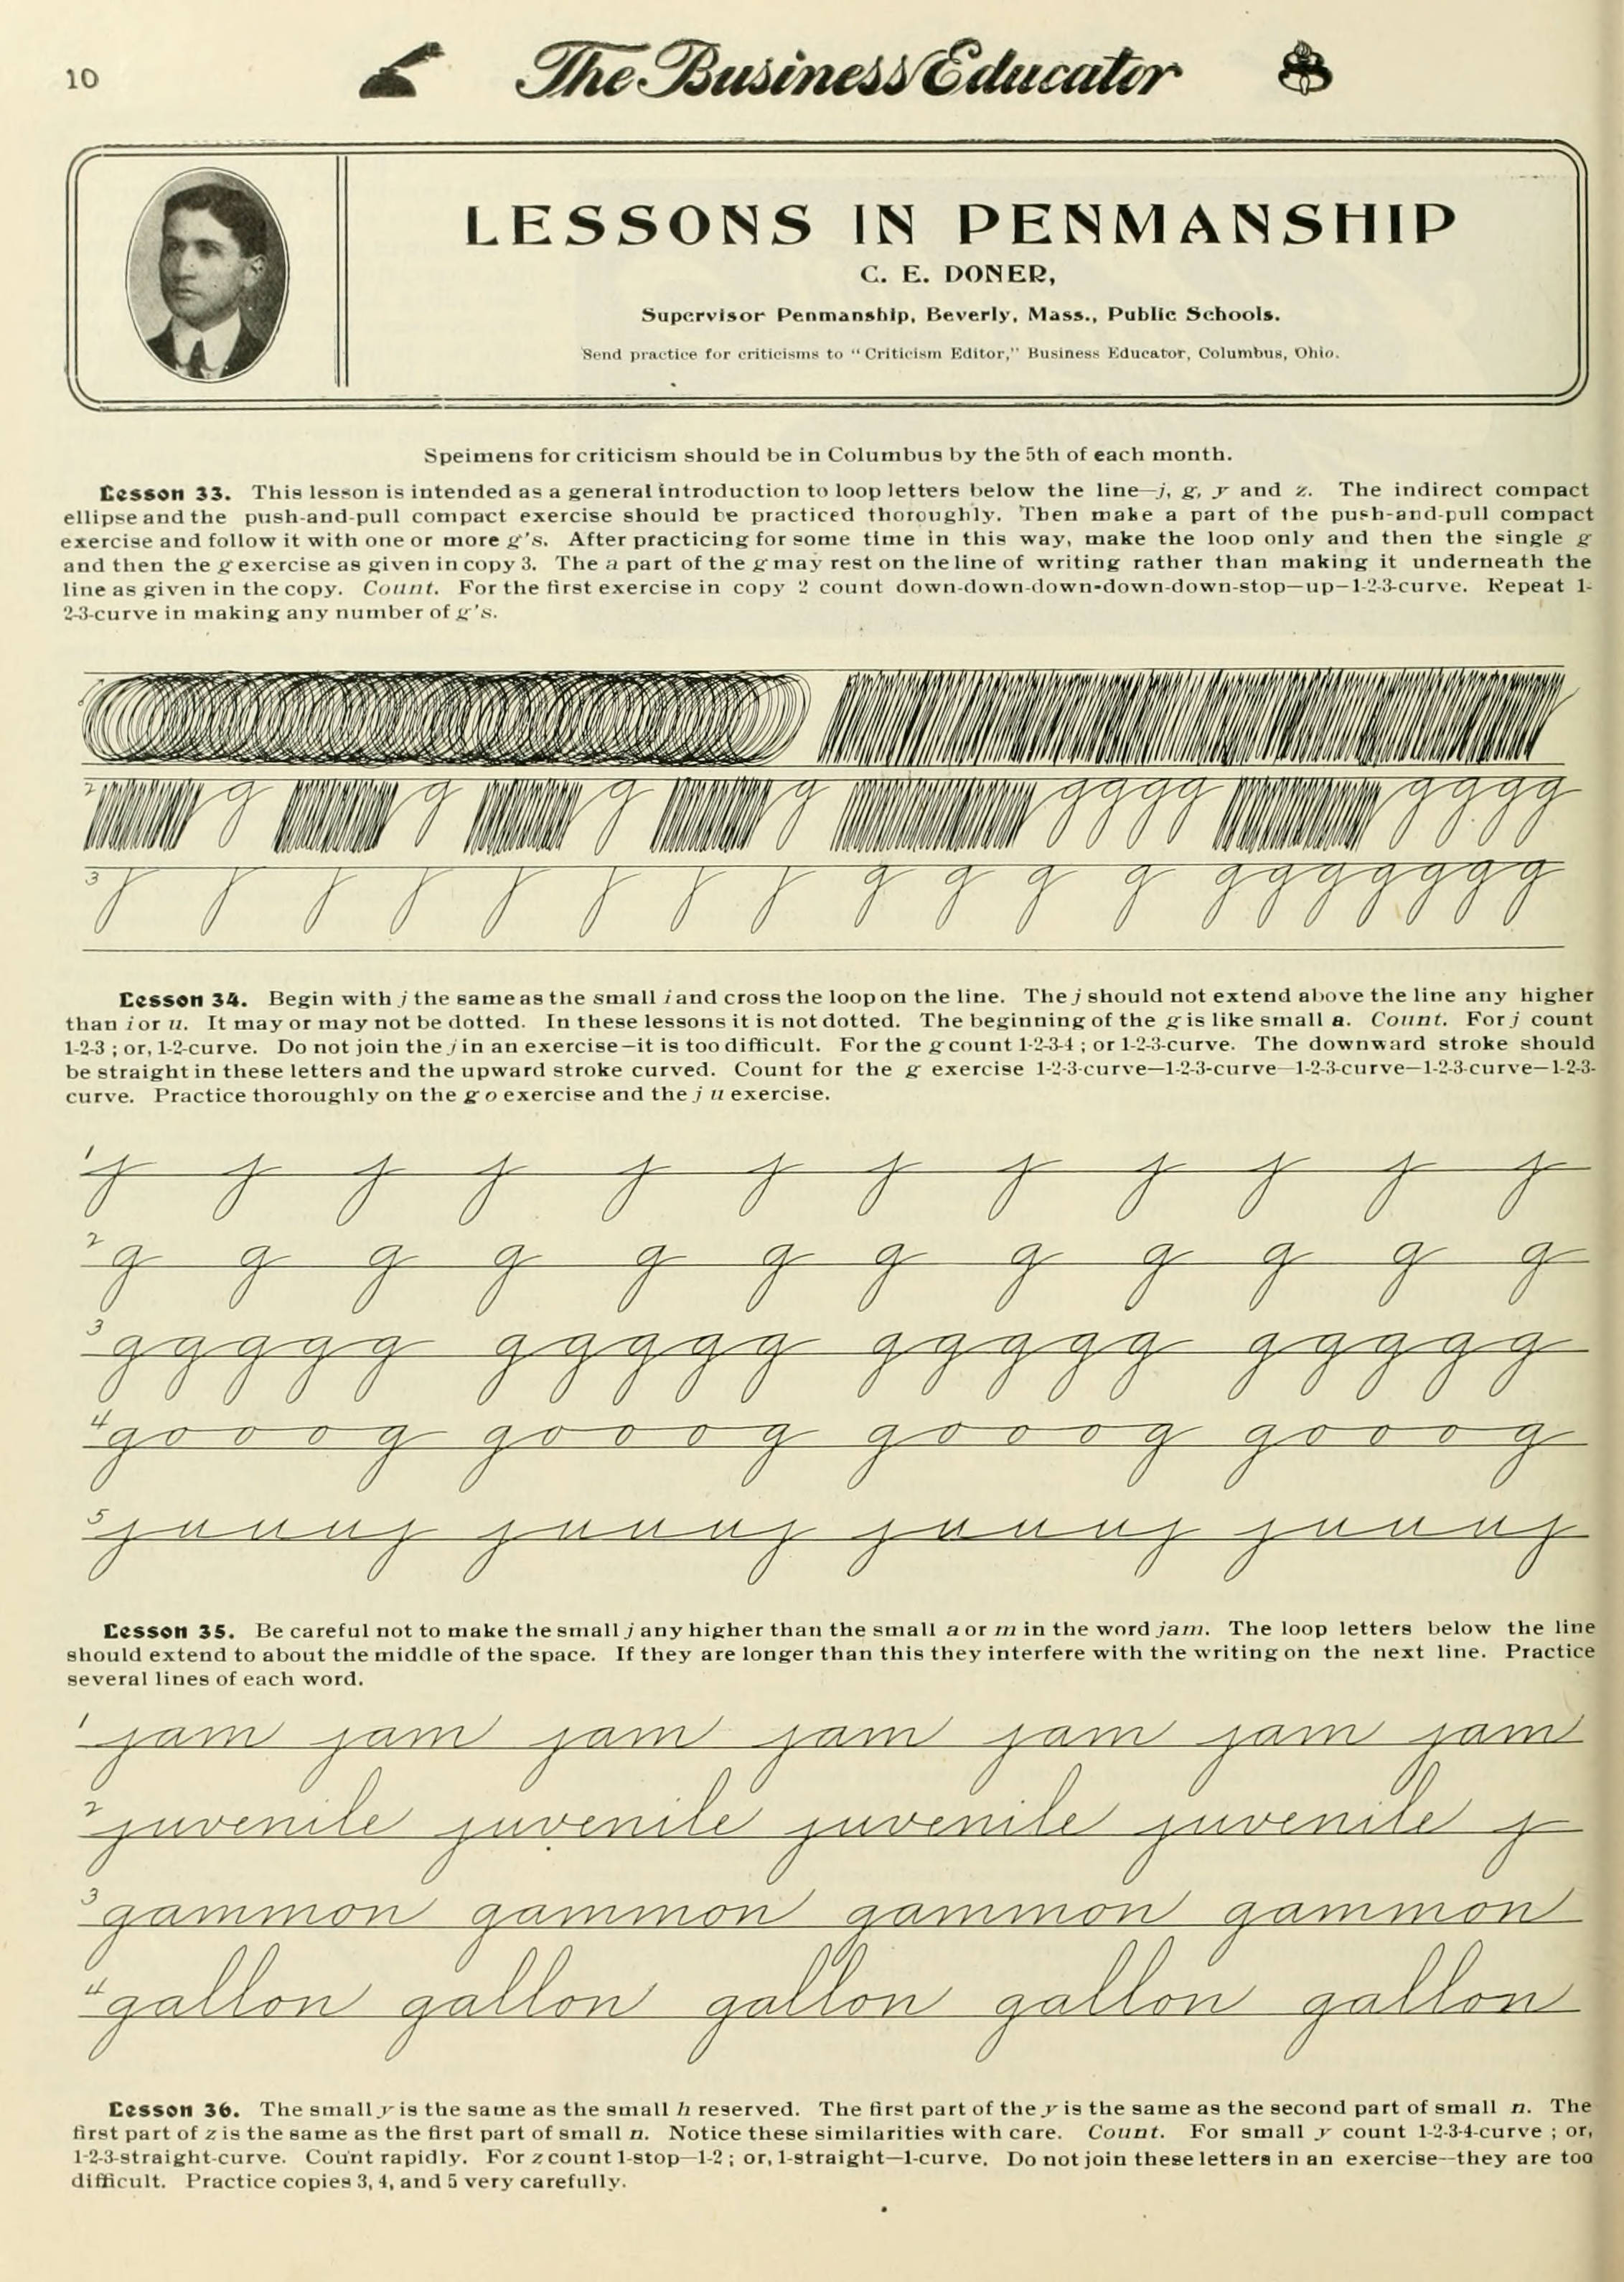 10
The Business Educator
LESSONS IN PENMANSHIP
C. E. DONER,
Supervisor Penmanship, Beverly, Mass., Public Schools.
Send practice for criticisms to "Criticism Editor," Business Educator, Columbus, Ohio.
Speimens for criticism should be in Columbus by the 5th of each month.
Lesson 33. This lesson is intended as a general introduction to loop letters below the line—j, g, y and z. The indirect compact
ellipse and the push-and-pull compact exercise should be practiced thoroughly. Then make a part of the push-and-pull compact
exercise and follow it with one or more g's. After practicing for some time in this way, make the loop only and then the single g
and then the g exercise as given in copy 3. The a part of the g may rest on the line of writing rather than making it underneath the
line as given in the copy. Count. For the first exercise in copy 2 count down-down-down-down-down-stop—up—1-2-3-curve. Repeat 1-
2-3-curve in making any number of g's.
2 g g g g g g g g g g g g
3 g g g g g g g g g g g
Lesson 34. Begin with j the same as the small i and cross the loop on the line. The j should not extend above the line any higher
than i or u. It may or may not be dotted. In these lessons it is not dotted. The beginning of the g is like small a. Count. For j count
1-2-3 ; or, 1-2-curve. Do not join the j in an exercise—it is too difficult. For the g count 1-2-3-4 ; or 1-2-3-curve. The downward stroke should
be straight in these letters and the upward stroke curved. Count for the g exercise 1-2-3-curve—1-2-3-curve—1-2-3-curve—1-2-3-curve—1-2-3-
curve. Practice thoroughly on the g o exercise and the j u exercise.
1 j j j j j j j j j j j j
2 g g g g g g g g g g g g
3 ggggg ggggg ggggg ggggg
4 gooog gooog gooog gooog
5 juuuj juuuj juuuj juuuj
Lesson 35. Be careful not to make the small j any higher than the small a or m in the word jam. The loop letters below the line
should extend to about the middle of the space. If they are longer than this they interfere with the writing on the next line. Practice
several lines of each word.
1 jam jam jam jam jam jam jam
2 juvenile juvenile juvenile juvenile j
3 gammon gammon gammon gammon
4 gallon gallon gallon gallon gallon
Lesson 36. The small y is the same as the small h reserved. The first part of the y is the same as the second part of small n. The
first part of z is the same as the first part of small n. Notice these similarities with care. Count. For small y count 1-2-3-4-curve ; or,
1-2-3-straight-curve. Count rapidly. For z count 1-stop—1-2 ; or, 1-straight—1-curve. Do not join these letters in an exercise—they are too
difficult. Practice copies 3, 4, and 5 very carefully.